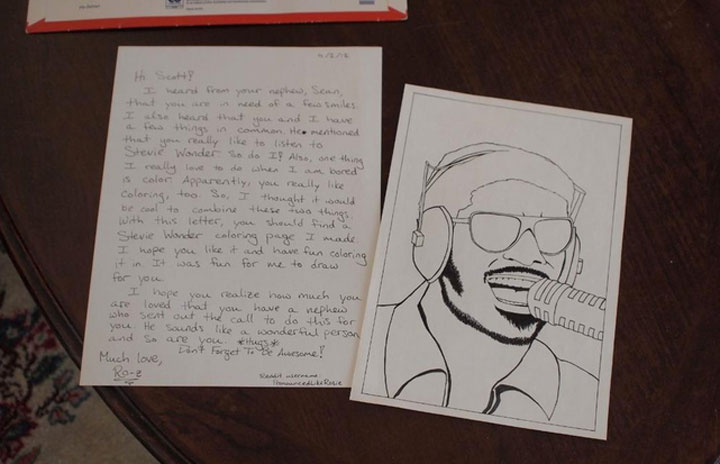 4/2/12
Hi Scott!
I heard from your nephew, Sean,
that you are in need of a few smiles.
I also heard that you and I have
a few things in common. He mentioned
that you really like to listen to
Stevie Wonder. So do I! Also, one thing
I really love to do when I am bored
is color. Apparently, you really like
coloring, too. So, I thought it would
be cool to combine these two things.
With this letter, you should find a
Stevie Wonder coloring page I made.
I hope you like it and have fun coloring
it in. It was fun for me to draw
for you.
I hope you realize how much you
are loved that you have a nephew
who sent out the call to do this for
you. He sounds like a wonderful person
and so are you. *Hugs*
Don't Forget To Be Awesome!
Much love,
Ro-z
Reddit username:
PronouncedLikeRosie